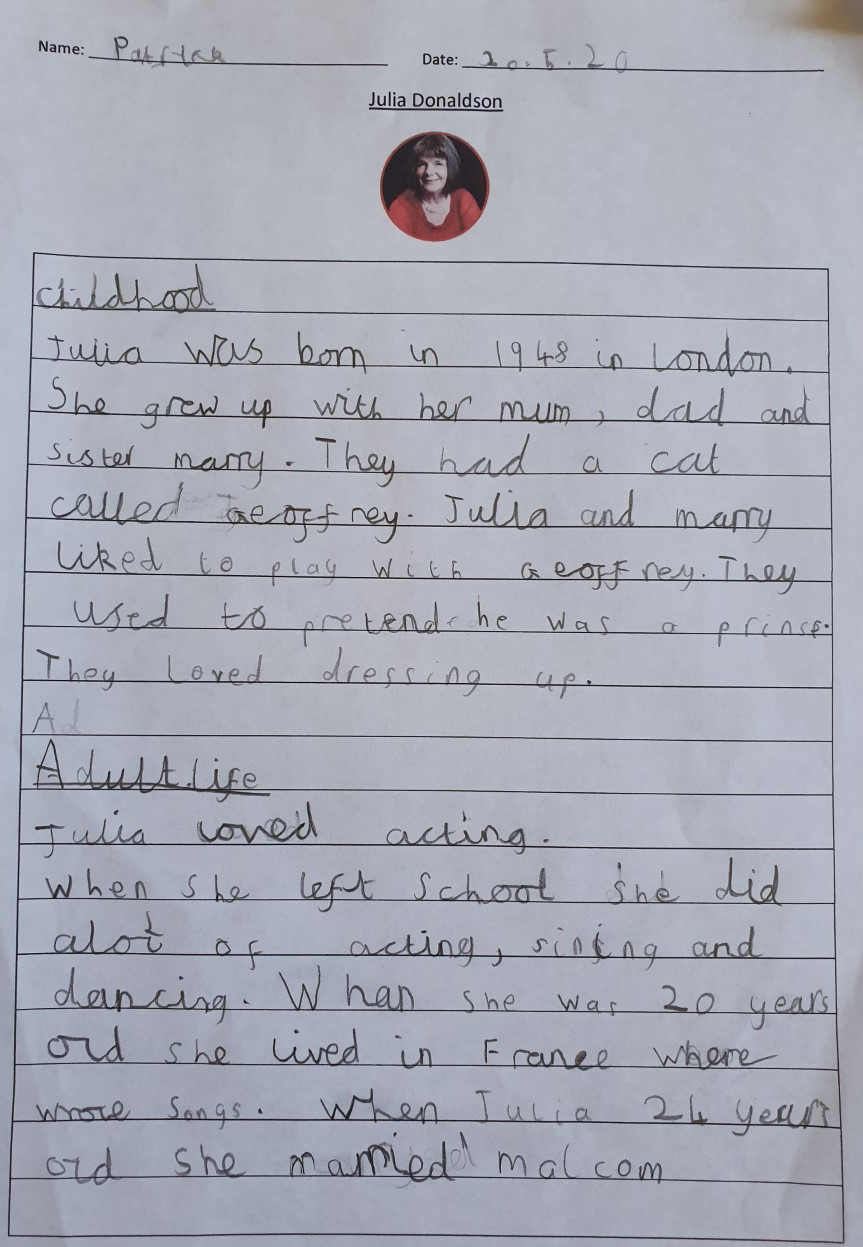 Name: Patrick Date: 20.5.20
Julia Donaldson
Childhood
Julia was born in 1948 in London.
She grew up with her mum, dad and
sister marry. They had a cat
called Geoffrey. Julia and marry
liked to play with Geoffrey. They
used to pretend he was a prince.
They loved dressing up.
Ad
Adult life
Julia loved acting.
When she left school she did
alot of acting, sining and
dancing. Whan she was 20 years
old she lived in France where
wrote songs. When Julia 24 years
old she married malcom